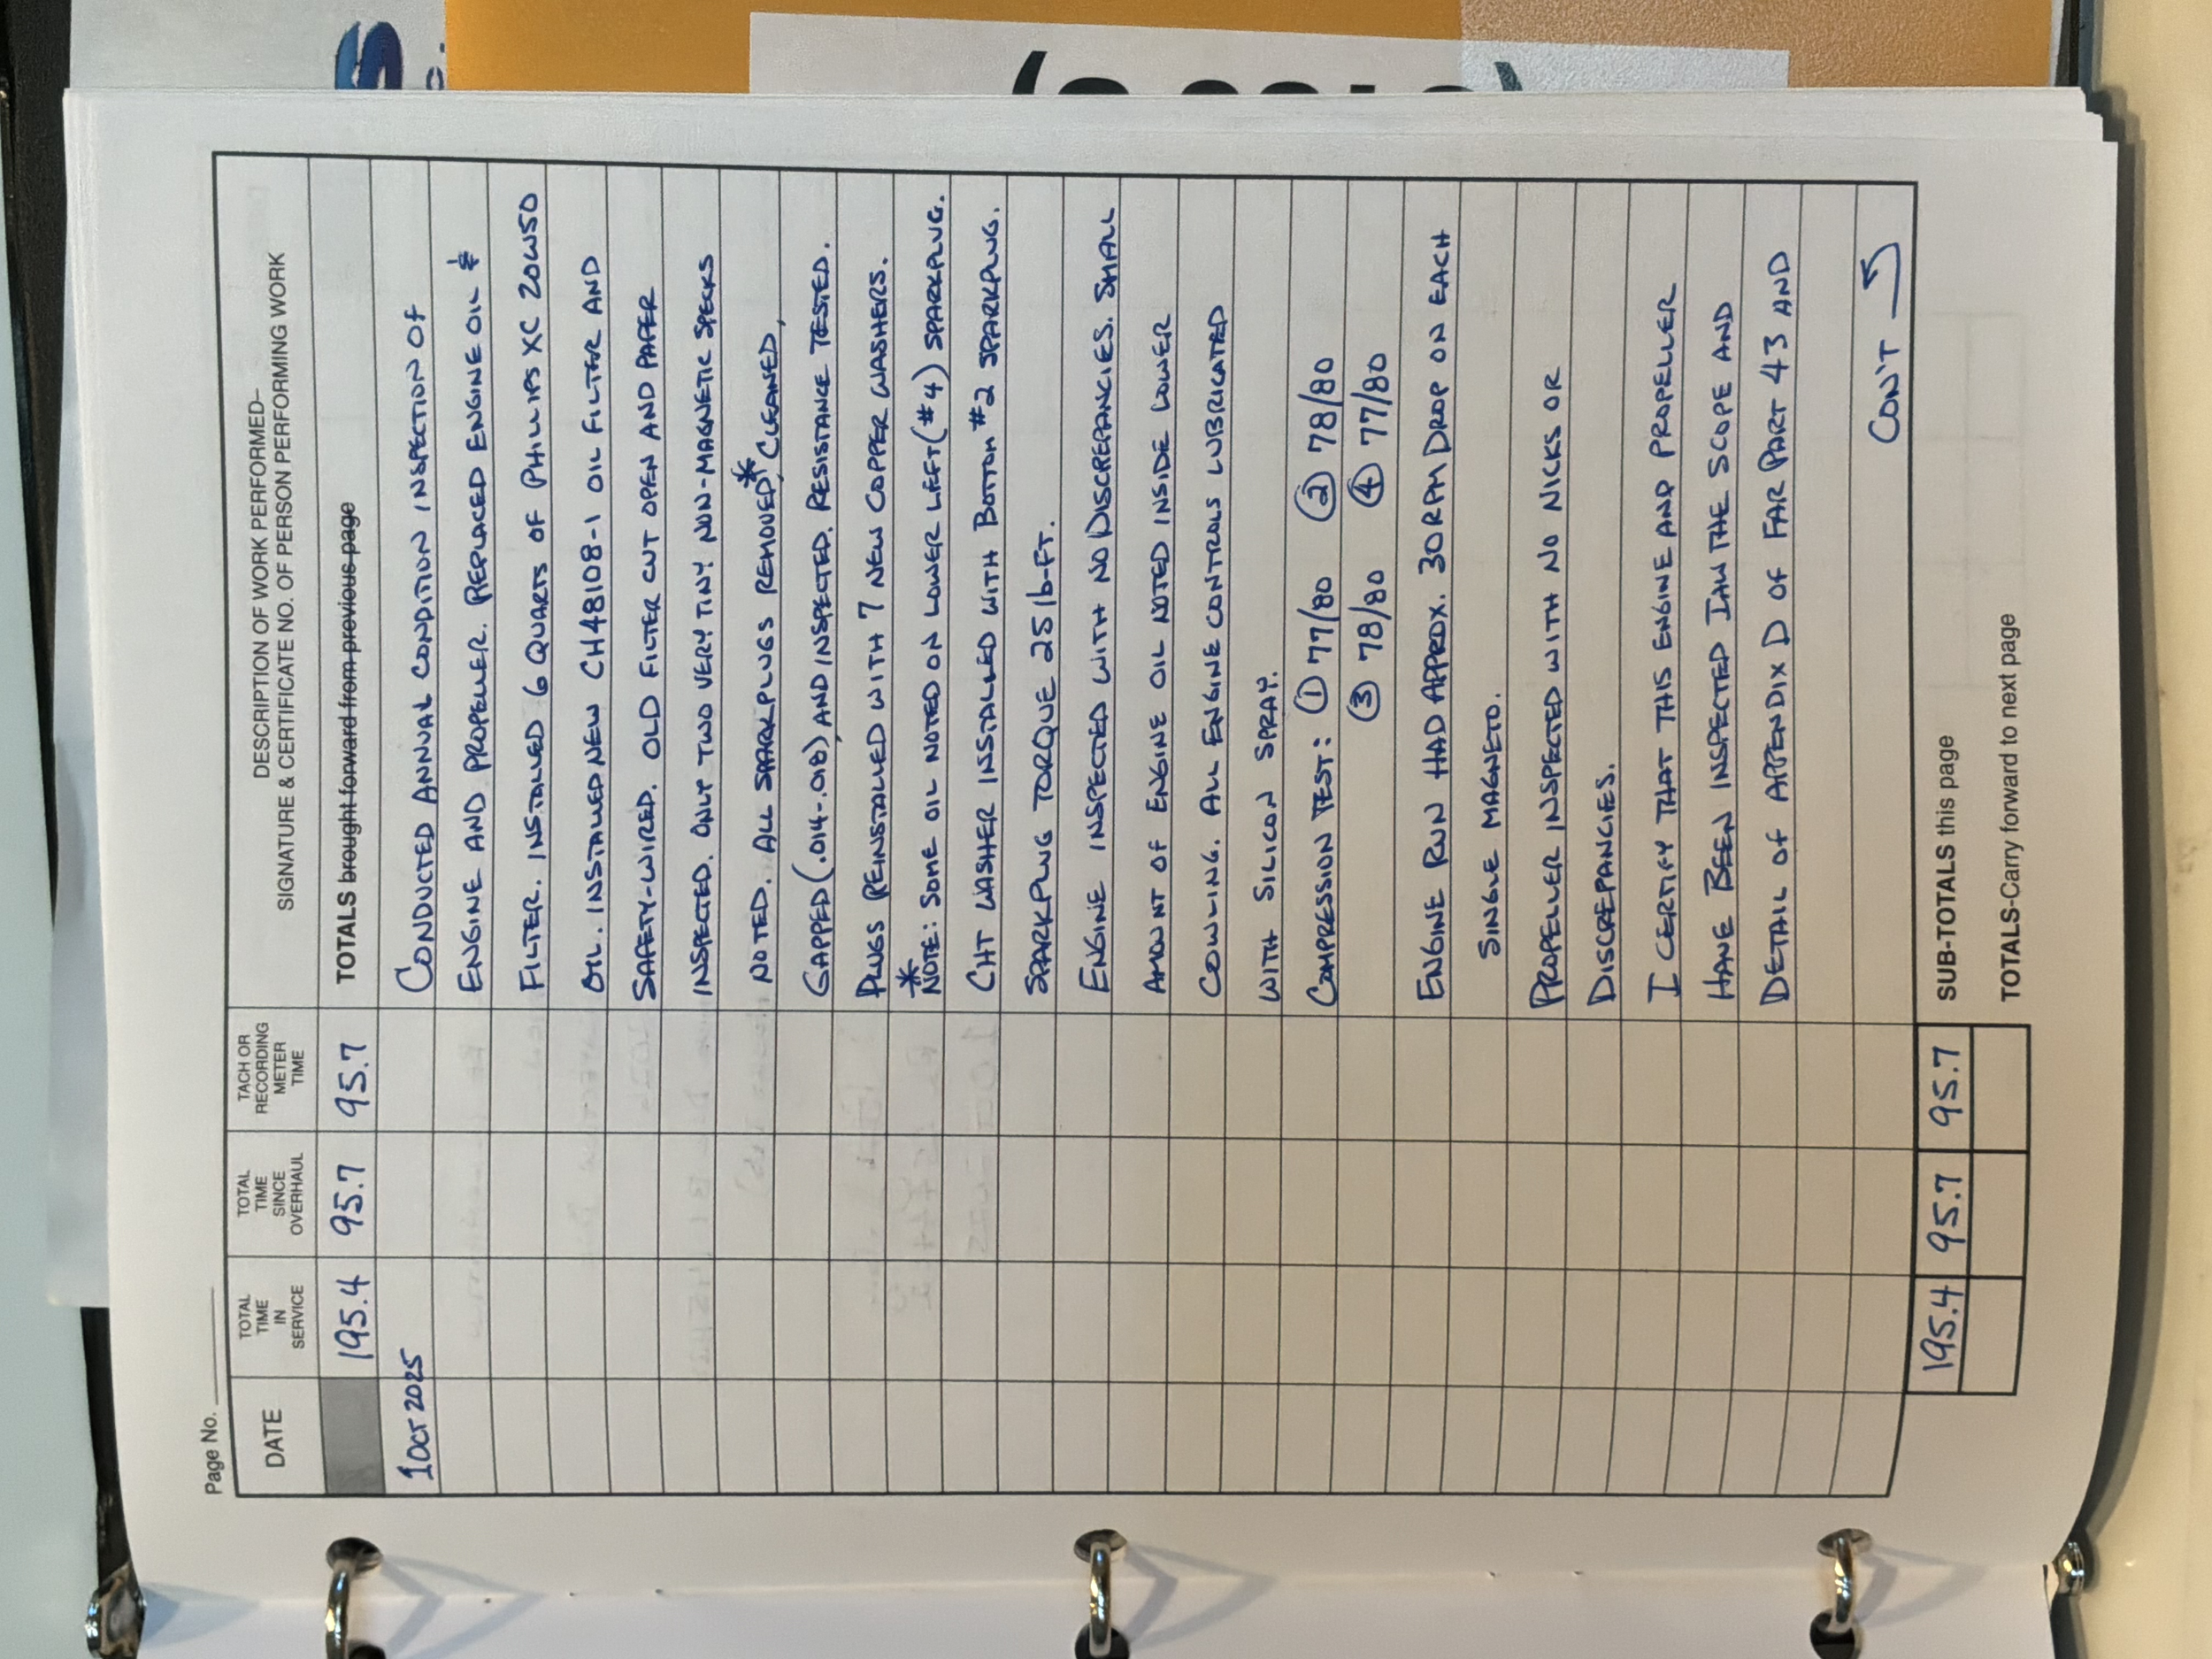 Page No.
DATE
TOTAL TIME IN SERVICE
TOTAL TIME SINCE OVERHAUL
TACH OR RECORDING METER TIME
DESCRIPTION OF WORK PERFORMED–
SIGNATURE & CERTIFICATE NO. OF PERSON PERFORMING WORK
195.4 95.7 95.7 TOTALS brought forward from previous page
1 OCT 2025 CONDUCTED ANNUAL CONDITION INSPECTION OF
ENGINE AND PROPELLER. REPLACED ENGINE OIL &
FILTER. INSTALLED 6 QUARTS OF PHILLIPS XC 20W50
OIL. INSTALLED NEW CH48108-1 OIL FILTER AND
SAFETY-WIRED. OLD FILTER CUT OPEN AND PAPER
INSPECTED. ONLY TWO VERY TINY NON-MAGNETIC SPECKS
NOTED. ALL SPARKPLUGS REMOVED*, CLEANED,
GAPPED (.014-.018), AND INSPECTED. RESISTANCE TESTED.
PLUGS REINSTALLED WITH 7 NEW COPPER WASHERS.
* NOTE: SOME OIL NOTED ON LOWER LEFT (#4) SPARKPLUG.
CHT WASHER INSTALLED WITH BOTTOM #2 SPARKPLUG.
SPARKPLUG TORQUE 25 lb-FT.
ENGINE INSPECTED WITH NO DISCREPANCIES. SMALL
AMOUNT OF ENGINE OIL NOTED INSIDE LOWER
COWLING. ALL ENGINE CONTROLS LUBRICATED
WITH SILICON SPRAY.
COMPRESSION TEST: ① 77/80 ② 78/80
③ 78/80 ④ 77/80
ENGINE RUN HAD APPROX. 30 RPM DROP ON EACH
SINGLE MAGNETO.
PROPELLER INSPECTED WITH NO NICKS OR
DISCREPANCIES.
I CERTIFY THAT THIS ENGINE AND PROPELLER
HAVE BEEN INSPECTED IAW THE SCOPE AND
DETAIL OF APPENDIX D OF FAR PART 43 AND
CON'T
195.4 95.7 95.7 SUB-TOTALS this page
TOTALS-Carry forward to next page